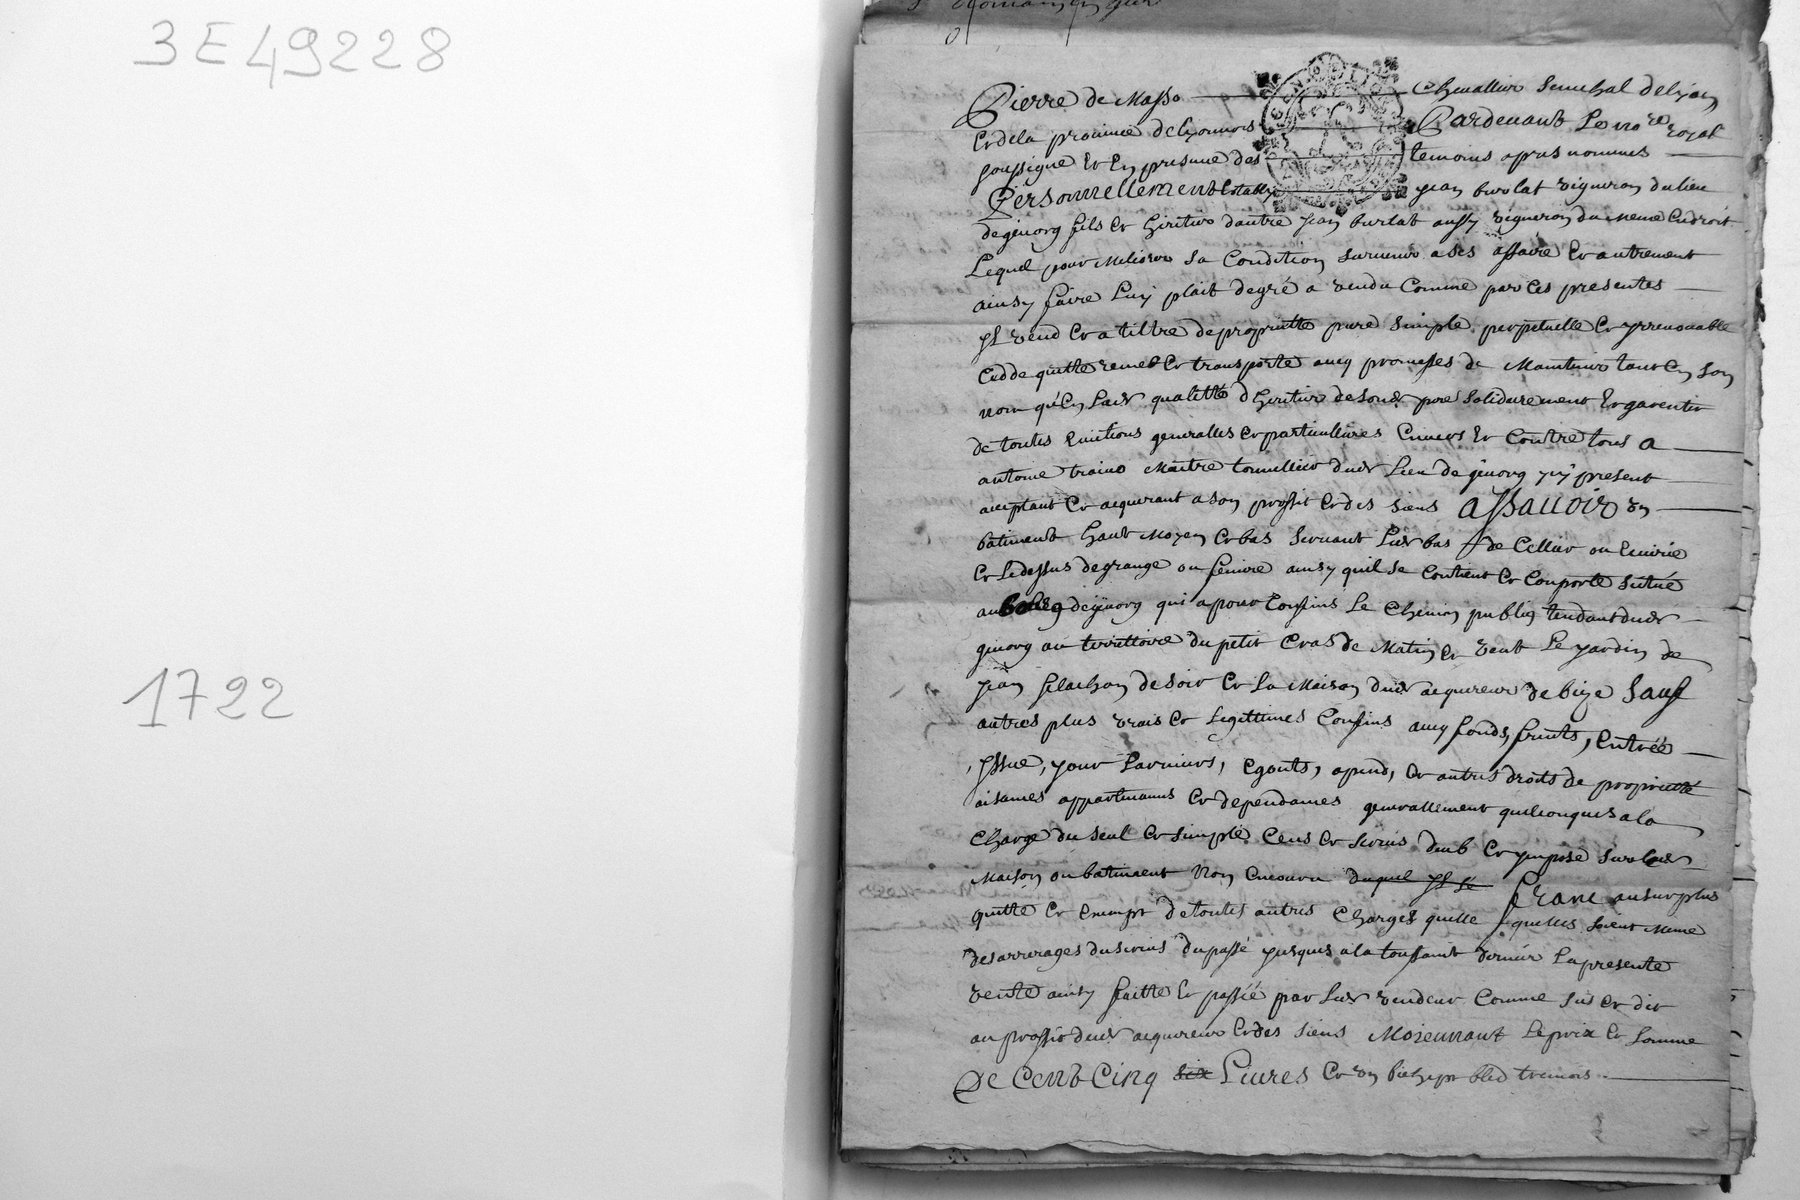 3E49228
1722
Pierre de Masso Chevallier Senechal de Lyon
Et de la province de Lyonnois Pardevant Le no.re royal
soussigné Et En presence des temoins apres nommes
Personnellement Estably jean burlat vigneron du lieu
de givorg fils Et heritier dautre jean burlat aussy vigneron du meme Endroit
Lequel pour Meliorer sa Condition survenir a ses affaire Et autrement
ainsy faire Luy plait degré a vendu Comme par Ces presentes
yl vend Et a tiltre de propriette pure simple perpetuelle Et yrrevocable
Cedde quitte remet Et transporte avec promesses de Maintenir tant En son
nom qu'En Ladt qualitté d'heritier de sondt pere solidairement Et garentir
de toutes Evictions generalles Et particullieres Envers Et Contre tous A
antoine Maitre tonnellier dudt Lieu de givorg present
acceptant Et acquerant a son proffit Et des siens Assavoir un
batiment haut Moyen Et bas servant Ledt bas de Cellier ou Ecuirie
Et Le dessus de grange ou feniere ainsy quil se Contient Et Comporte situé
au de givorg qui a pour Confins Le Chemin public tendant dudt
givorg au territtoire du petit Cras de Matin Et vent Le jardin de
jean de soir Et La Maison dudt acquereur de bize Sauf
autres plus vrais Et Legittimes Confins avec fonds, fruits, Entrée
, yssue, jour Larmiers, Egouts, apend, Et autres droits de propriette
aisances appartenances Et dependances generallement quelconques a la
Charge du seul Et simple Cens Et servis deub Et ymposé sur Ladt
Maison ou batiment Non Encouru duquel yl se franc au surplus
quitte Et Exempt de toutes autres Charges quelle quelles soient Meme
des arrerages du servis du passé jusques a la toussaint dernier La presente
vente ainsy faitte Et passée par Ledt vendeur Comme sus Et dit
au proffit dudt acquereur Et des siens Moiennant Le prix Et somme
De Cent Cinq six Livres Et un bichet bled tremois